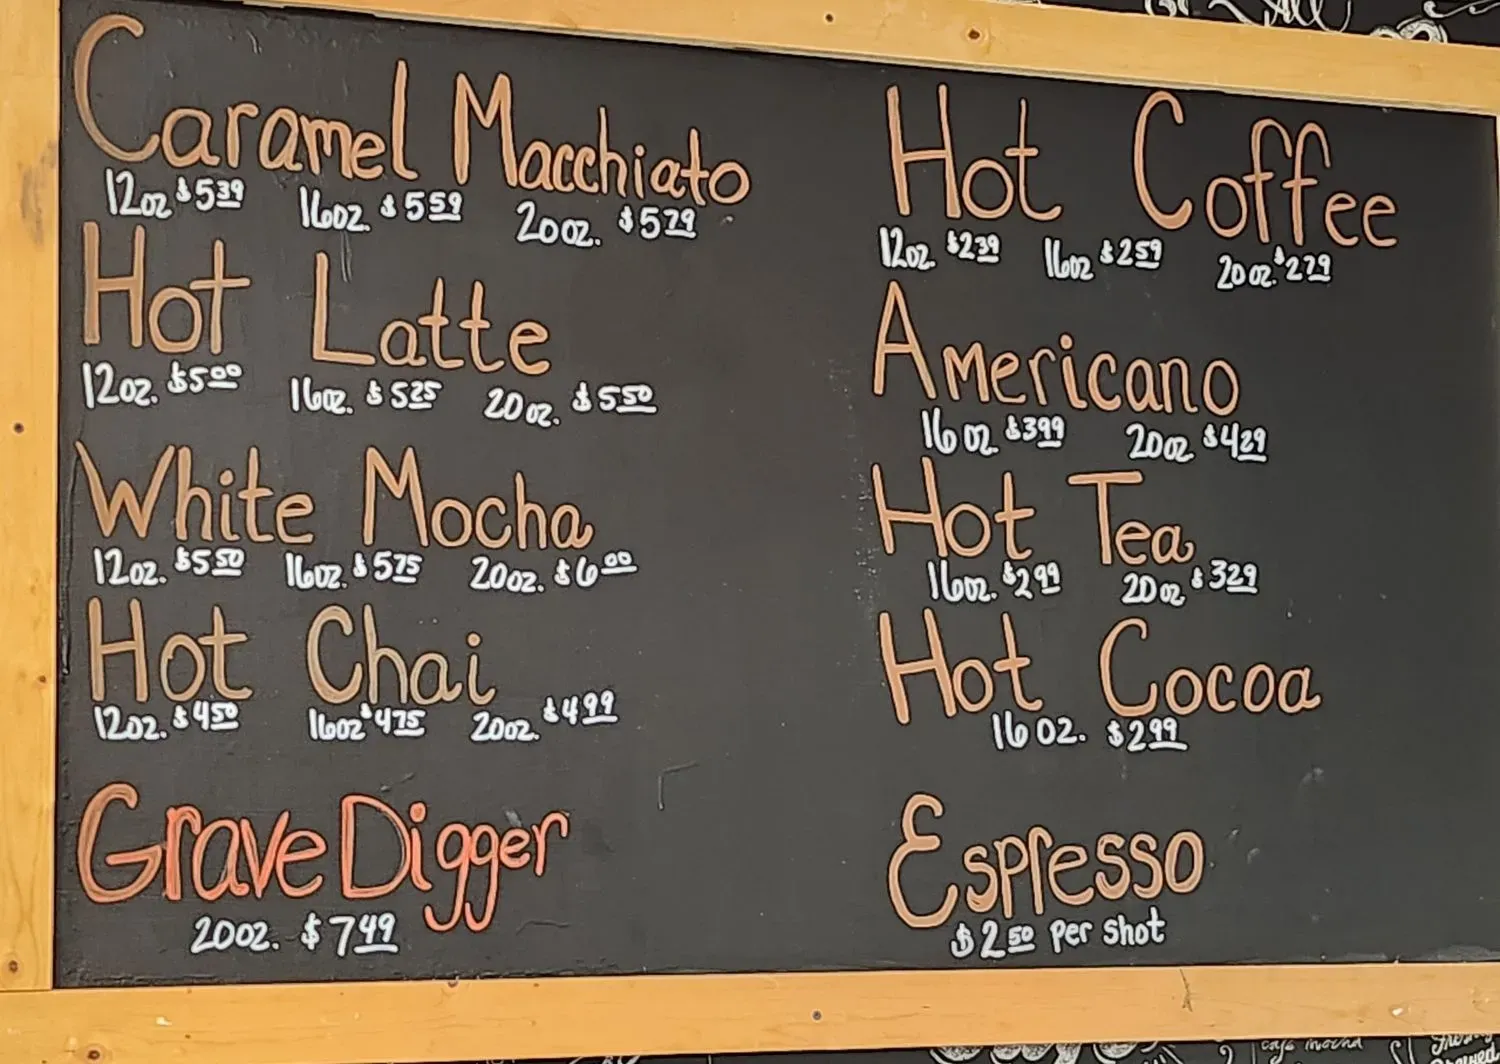 Caramel Macchiato
12oz $5.39 16oz. $5.59 20oz. $5.79
Hot Latte
12oz. $5.00 16oz. $5.25 20oz. $5.50
White Mocha
12oz. $5.50 16oz. $5.75 20oz. $6.00
Hot Chai
12oz. $4.50 16oz $4.75 20oz. $4.99
Grave Digger
20oz. $7.49
Hot Coffee
12oz. $2.39 16oz $2.59 20oz. $2.79
Americano
16oz. $3.99 20oz $4.29
Hot Tea
16oz. $2.99 20oz $3.29
Hot Cocoa
16oz. $2.99
Espresso
$2.50 per shot
cafe mocha